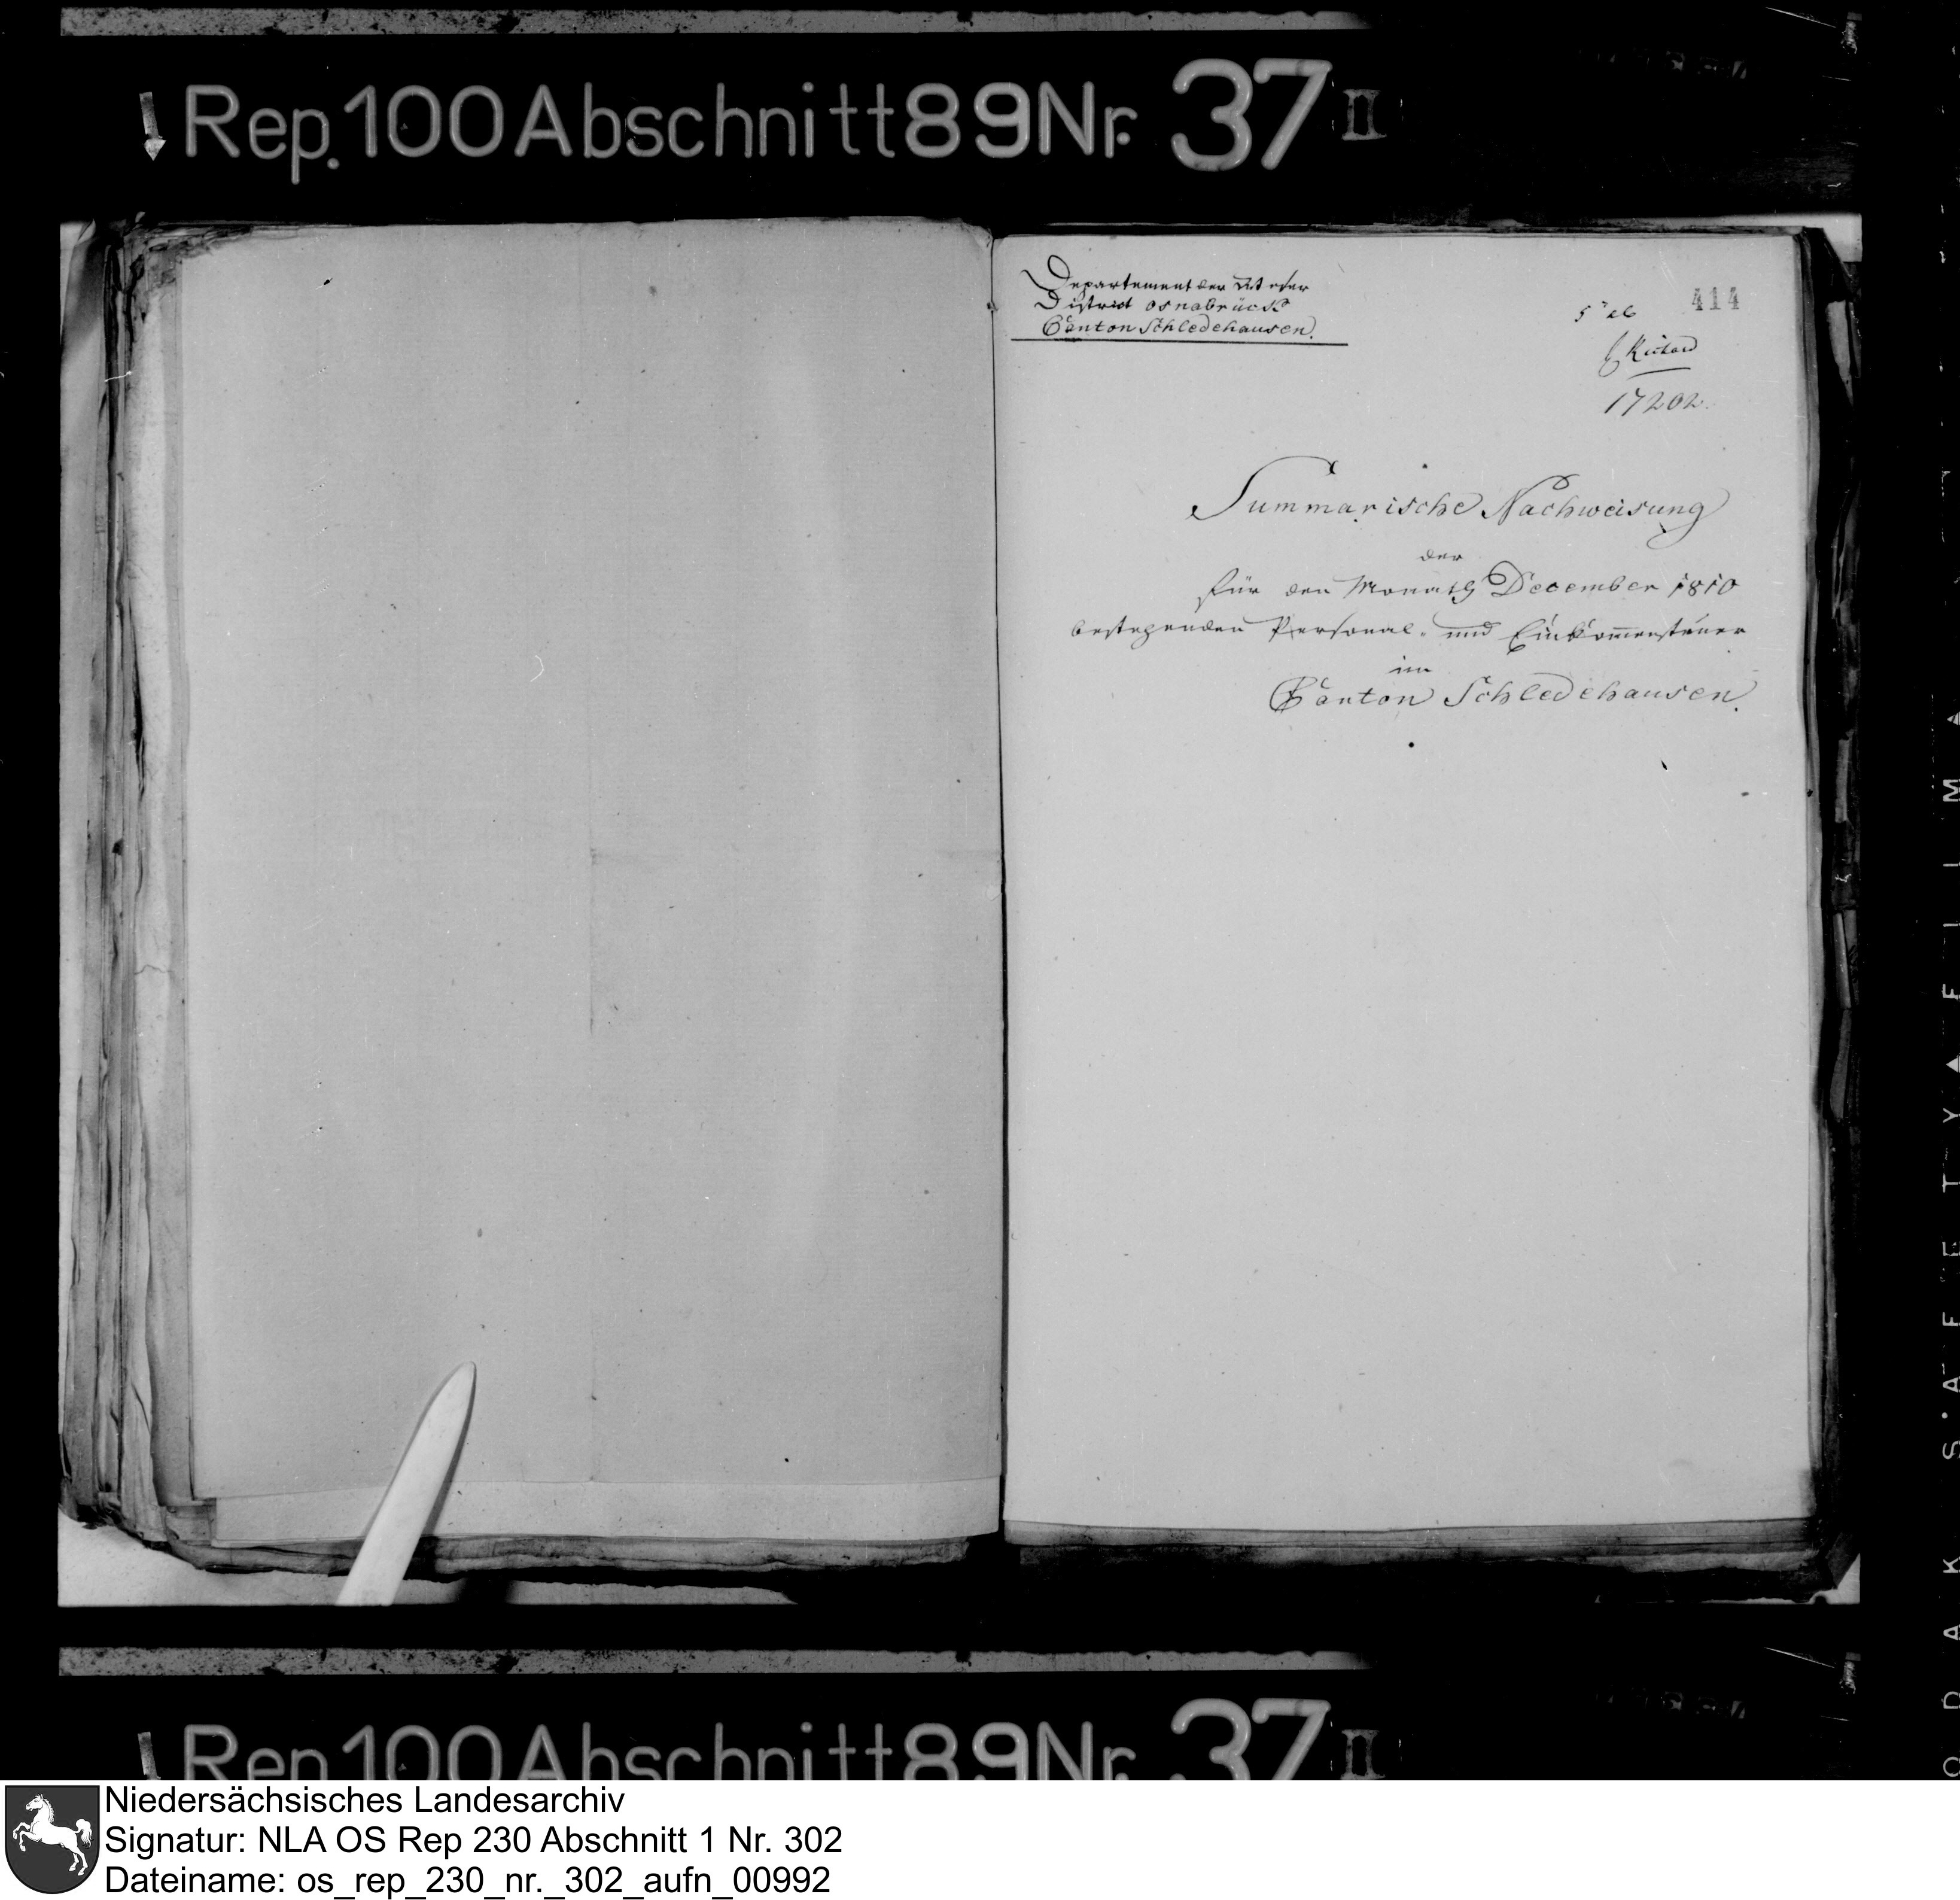 Rep. 100 Abschnitt 89 Nr. 37 II
Departement der Weser
District Osnabrück
Canton Schledehausen.
414
17202.
Summarische Nachweisung
der
für den Monath December 1810
bestehenden Personal- und Einkom̅ensteuer
im
Canton Schledehausen.
Rep. 100 Abschnitt 89 Nr. 37 II
Niedersächsisches Landesarchiv
Signatur: NLA OS Rep 230 Abschnitt 1 Nr. 302
Dateiname: os_rep_230_nr._302_aufn_00992
KODAK SAFETY FILM